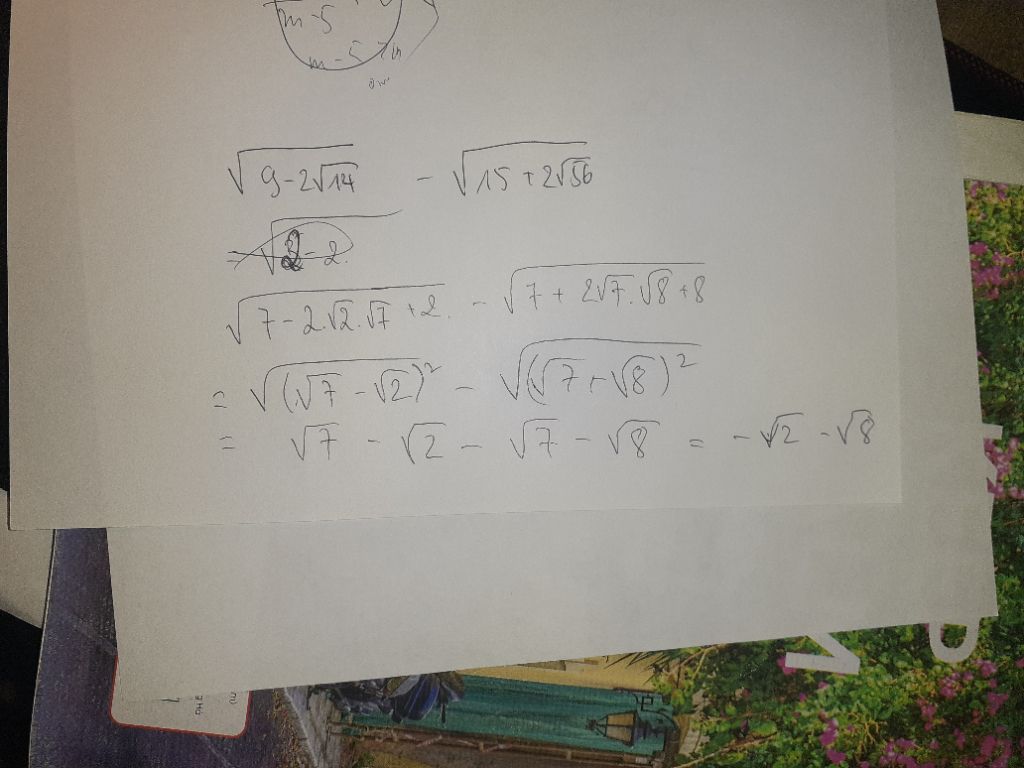 m-5
m-5
√(9-2√14) - √(15+2√56)
√(7-2.√2.√7+2. - √(7+2√7.√8+8
= √(√7-√2)² - √(√7+√8)²
= √7 - √2 - √7 - √8 = -√2 -√8